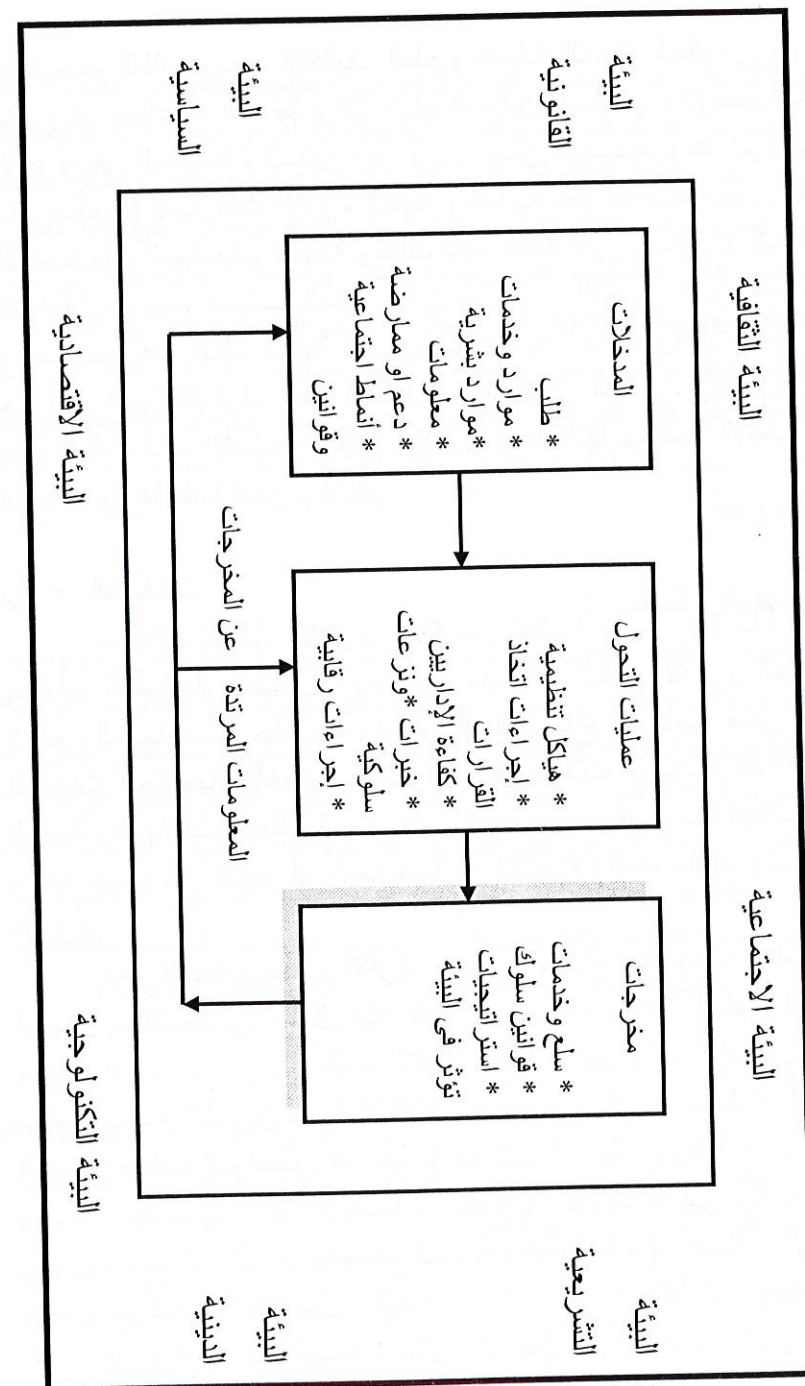 البيئة الثقافية
البيئة الاجتماعية
البيئة
القانونية
البيئة
التشريعية
المدخلات
* طلب
* موارد وخدمات
*موارد بشرية
* معلومات
* دعم او ممارضة
* أنماط اجتماعية
وقوانين
عمليات التحول
* هياكل تنظيمية
* إجراءات اتخاذ
القرارات
* كفاءة الإداريين
* خبرات *ونزعات
سلوكية
* إجراءات رقابية
مخرجات
* سلع وخدمات
* قوانين سلوك
* استراتيجيات
تؤثر فى البيئة
المعلومات المرتدة عن المخرجات
البيئة
السياسية
البيئة
الدينية
البيئة الاقتصادية
البيئة التكنولوجية